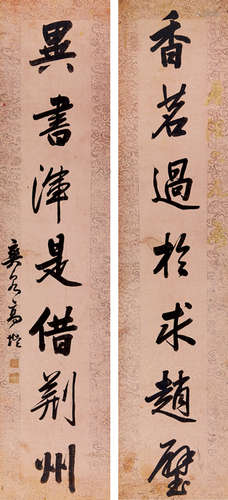 香茗過於求趙璧
異書渾是借荆州